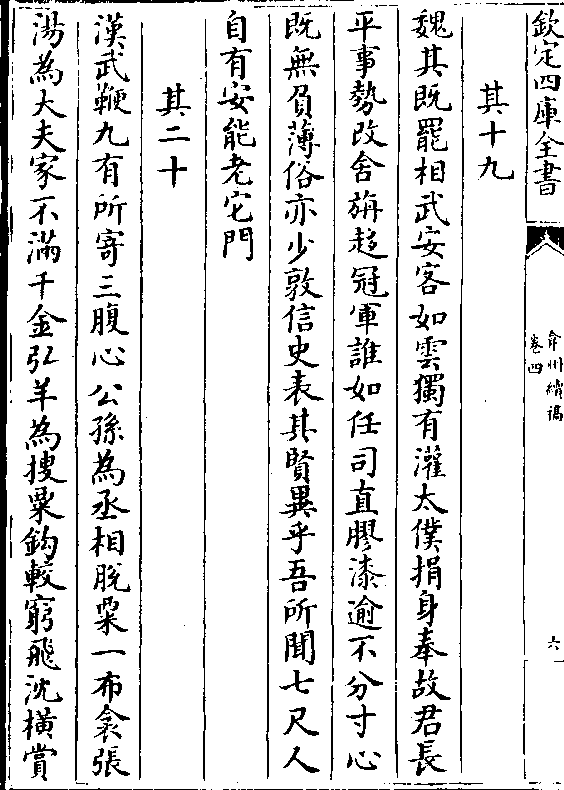 欽定四庫全書
弇州續稿
卷四
六
其十九
魏其既罷相武安客如雲獨有灌太僕捐身奉故君長
平事勢改舍旃趨冠軍誰如任司直膠漆逾不分寸心
既無負薄俗亦少敦信史表其賢異乎吾所聞七尺人
自有安能老它門
其二十
漢武鞭九有所寄三腹心公孫為丞相脫粟一布衾張
湯為大夫家不滿千金弘羊為搜粟鈎較窮飛沈橫賞